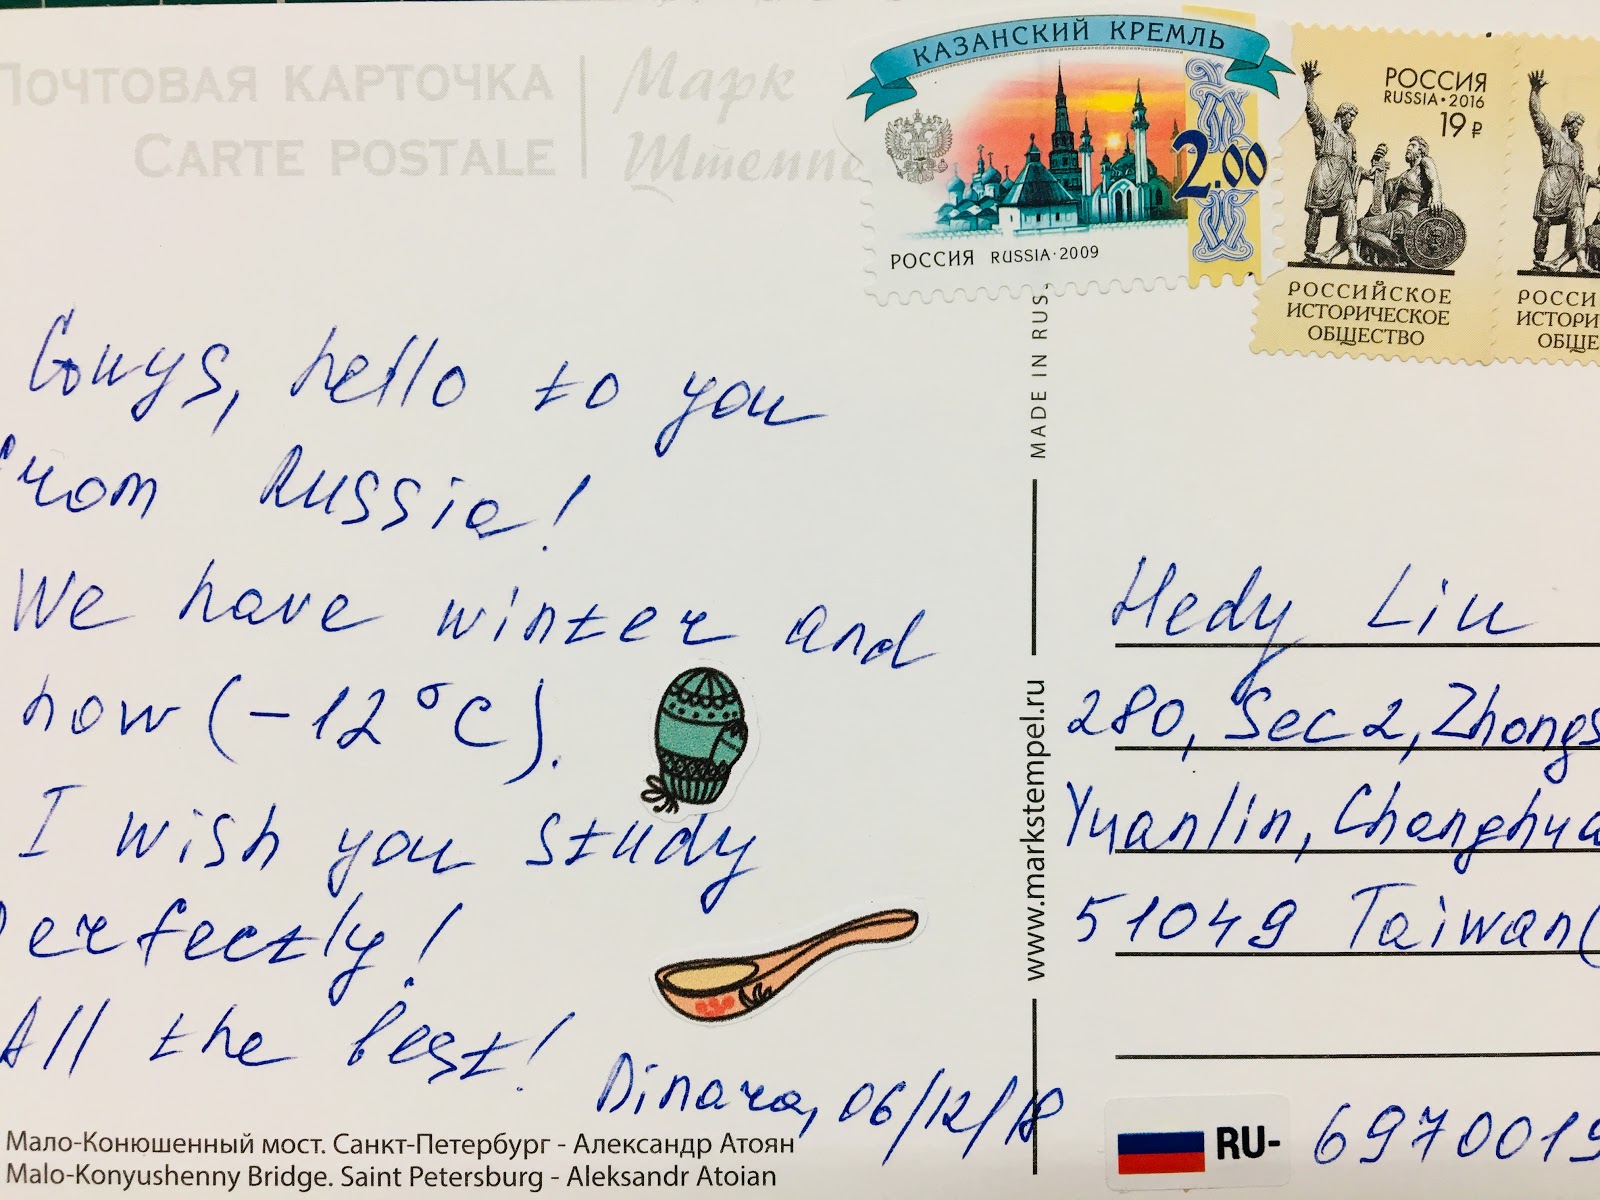 ПОЧТОВАЯ КАРТОЧКА
CARTE POSTALE
Марк
Штемпе
КАЗАНСКИЙ КРЕМЛЬ
2.00
РОССИЯ RUSSIA·2009
РОССИЯ
RUSSIA·2016
19 ₽
РОССИЙСКОЕ
ИСТОРИЧЕСКОЕ
ОБЩЕСТВО
РОССИ
ИСТОРИ
ОБЩЕ
Guys, hello to you
from Russia!
We have winter and
now (-12°C).
I wish you study
Perfectly!
All the best!
Dinara, 06/12/18
Мало-Конюшенный мост. Санкт-Петербург - Александр Атоян
Malo-Konyushenny Bridge. Saint Petersburg - Aleksandr Atoian
MADE IN RUS
www.markstempel.ru
Hedy Liu
280, Sec 2, Zhongs
Yuanlin, Changhua
51049 Taiwan (
RU- 6970019